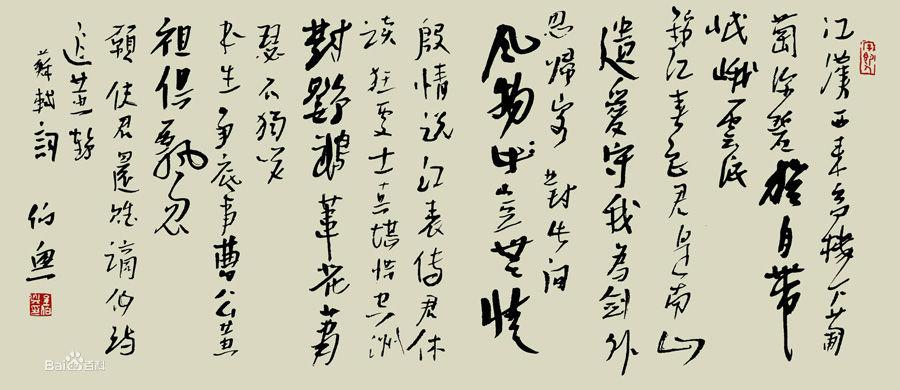 江漢西来高樓下葡
萄深碧猶自帶
岷峨雪浪
錦江春色君是南山
遺愛守我為劍外
思歸客對此间
風物岂無情
殷情説江表傳君休
读狂處士真堪惜空洲
對鸚鵡葦花蕭
瑟不獨笑
书生争底事曹公黄
祖俱飘忽
願使君還賦謫仙詩
追黄鹤
蘇軾詞
伯
Baidu百科